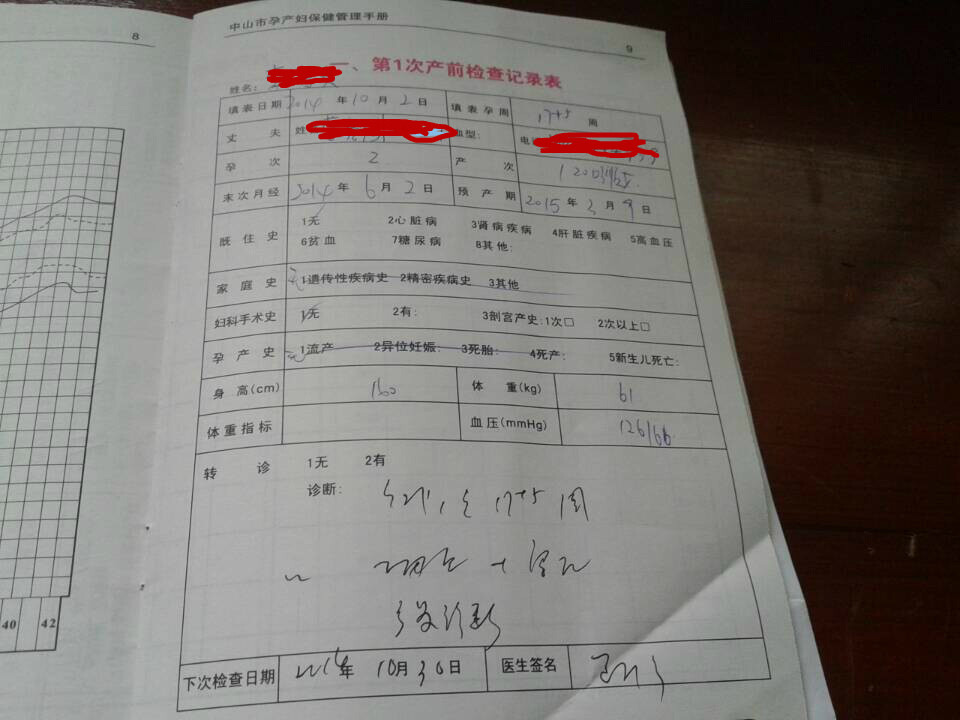 8
中山市孕产妇保健管理手册
9
一、第1次产前检查记录表
姓名：
填表日期 2014年10月2日 填表孕周 17+5 周
丈夫 姓 血型： 电
孕次 2 产次 1
末次月经 2014年6月2日 预产期 2015年3月9日
既住史 1无 2心脏病 3肾病疾病 4肝脏疾病 5高血压
6贫血 7糖尿病 8其他：
家庭史 无 1遗传性疾病史 2精密疾病史 3其他
妇科手术史 1无 2有： 3剖宫产史：1次□ 2次以上□
孕产史 1流产 2异位妊娠： 3死胎： 4死产： 5新生儿死亡：
身高(cm) 160 体重(kg) 61
体重指标 血压(mmHg) 126/66
转诊 1无 2有
诊断： 17+5周
下次检查日期 2014年10月30日 医生签名
40 42